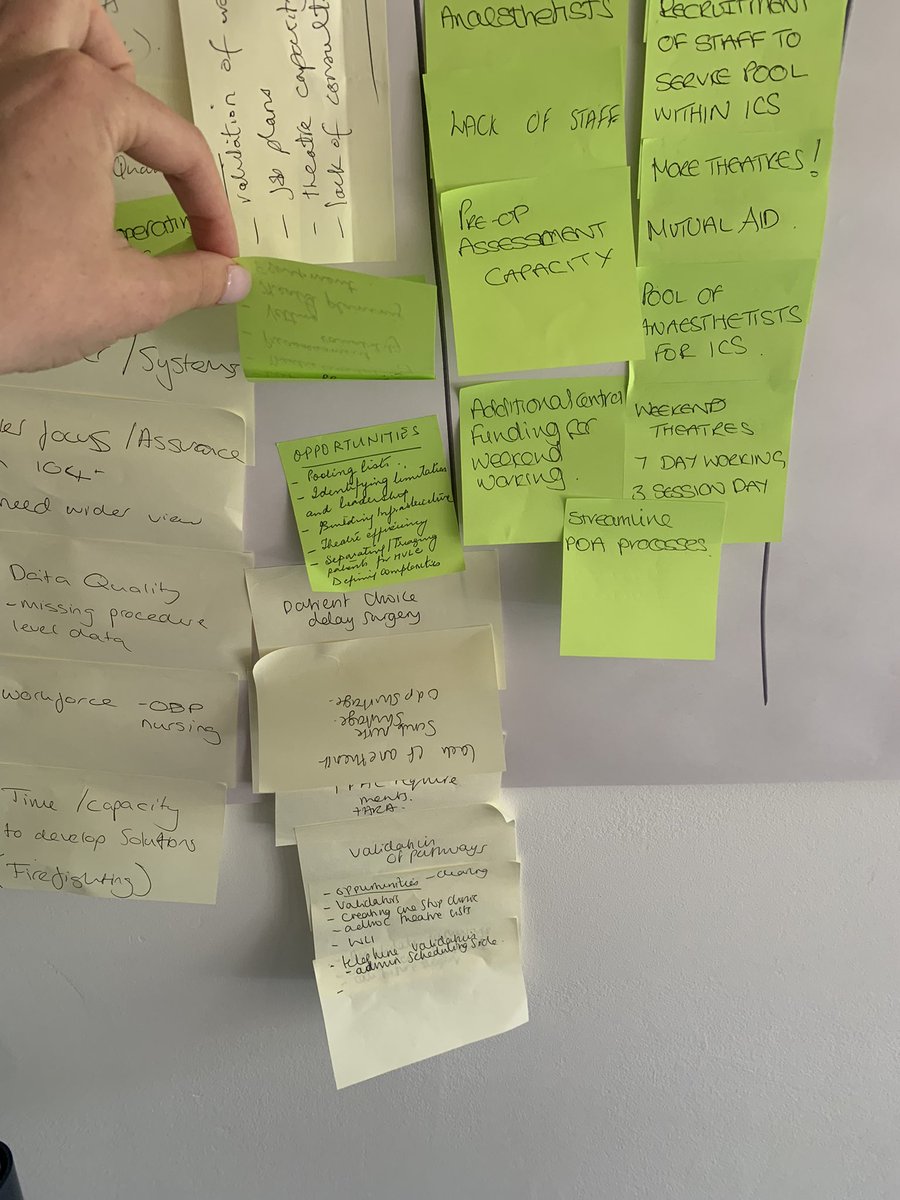 validation of
- job plans
- theatre capacity
- lack of
/Systems
focus /Assurance
104+
need wider view
Data Quality
- missing procedure
level data
workforce - ODP
nursing
Time /capacity
to develop Solutions
(Firefighting)
OPPORTUNITIES
- Pooling lists
- Identifying limitation
and leadership
- Building Infrastructure
- Theatre efficiency
- Separating/Triaging
patients for HVLC
Defining complexities
Patient Choice
delay surgery
Lack of
Scrub nurse
shortage.
Odp shortage.
ments.
validation
of pathways
- opportunities - clearing
- validators
- creating one stop clinic
- adhoc theatre lists
- WLI
- telephone validation
- admin scheduling side.
-
ANAESTHETISTS
LACK OF STAFF
PRE-OP
ASSESSMENT
CAPACITY
Additional central
funding for
weekend
working.
RECRUITMENT
OF STAFF TO
SERVE POOL
WITHIN ICS
MORE THEATRES!
MUTUAL AID.
POOL OF
ANAESTHETISTS
FOR ICS.
WEEKEND
THEATRES
7 DAY WORKING
3 SESSION DAY
Streamline
POA PROCESSES.